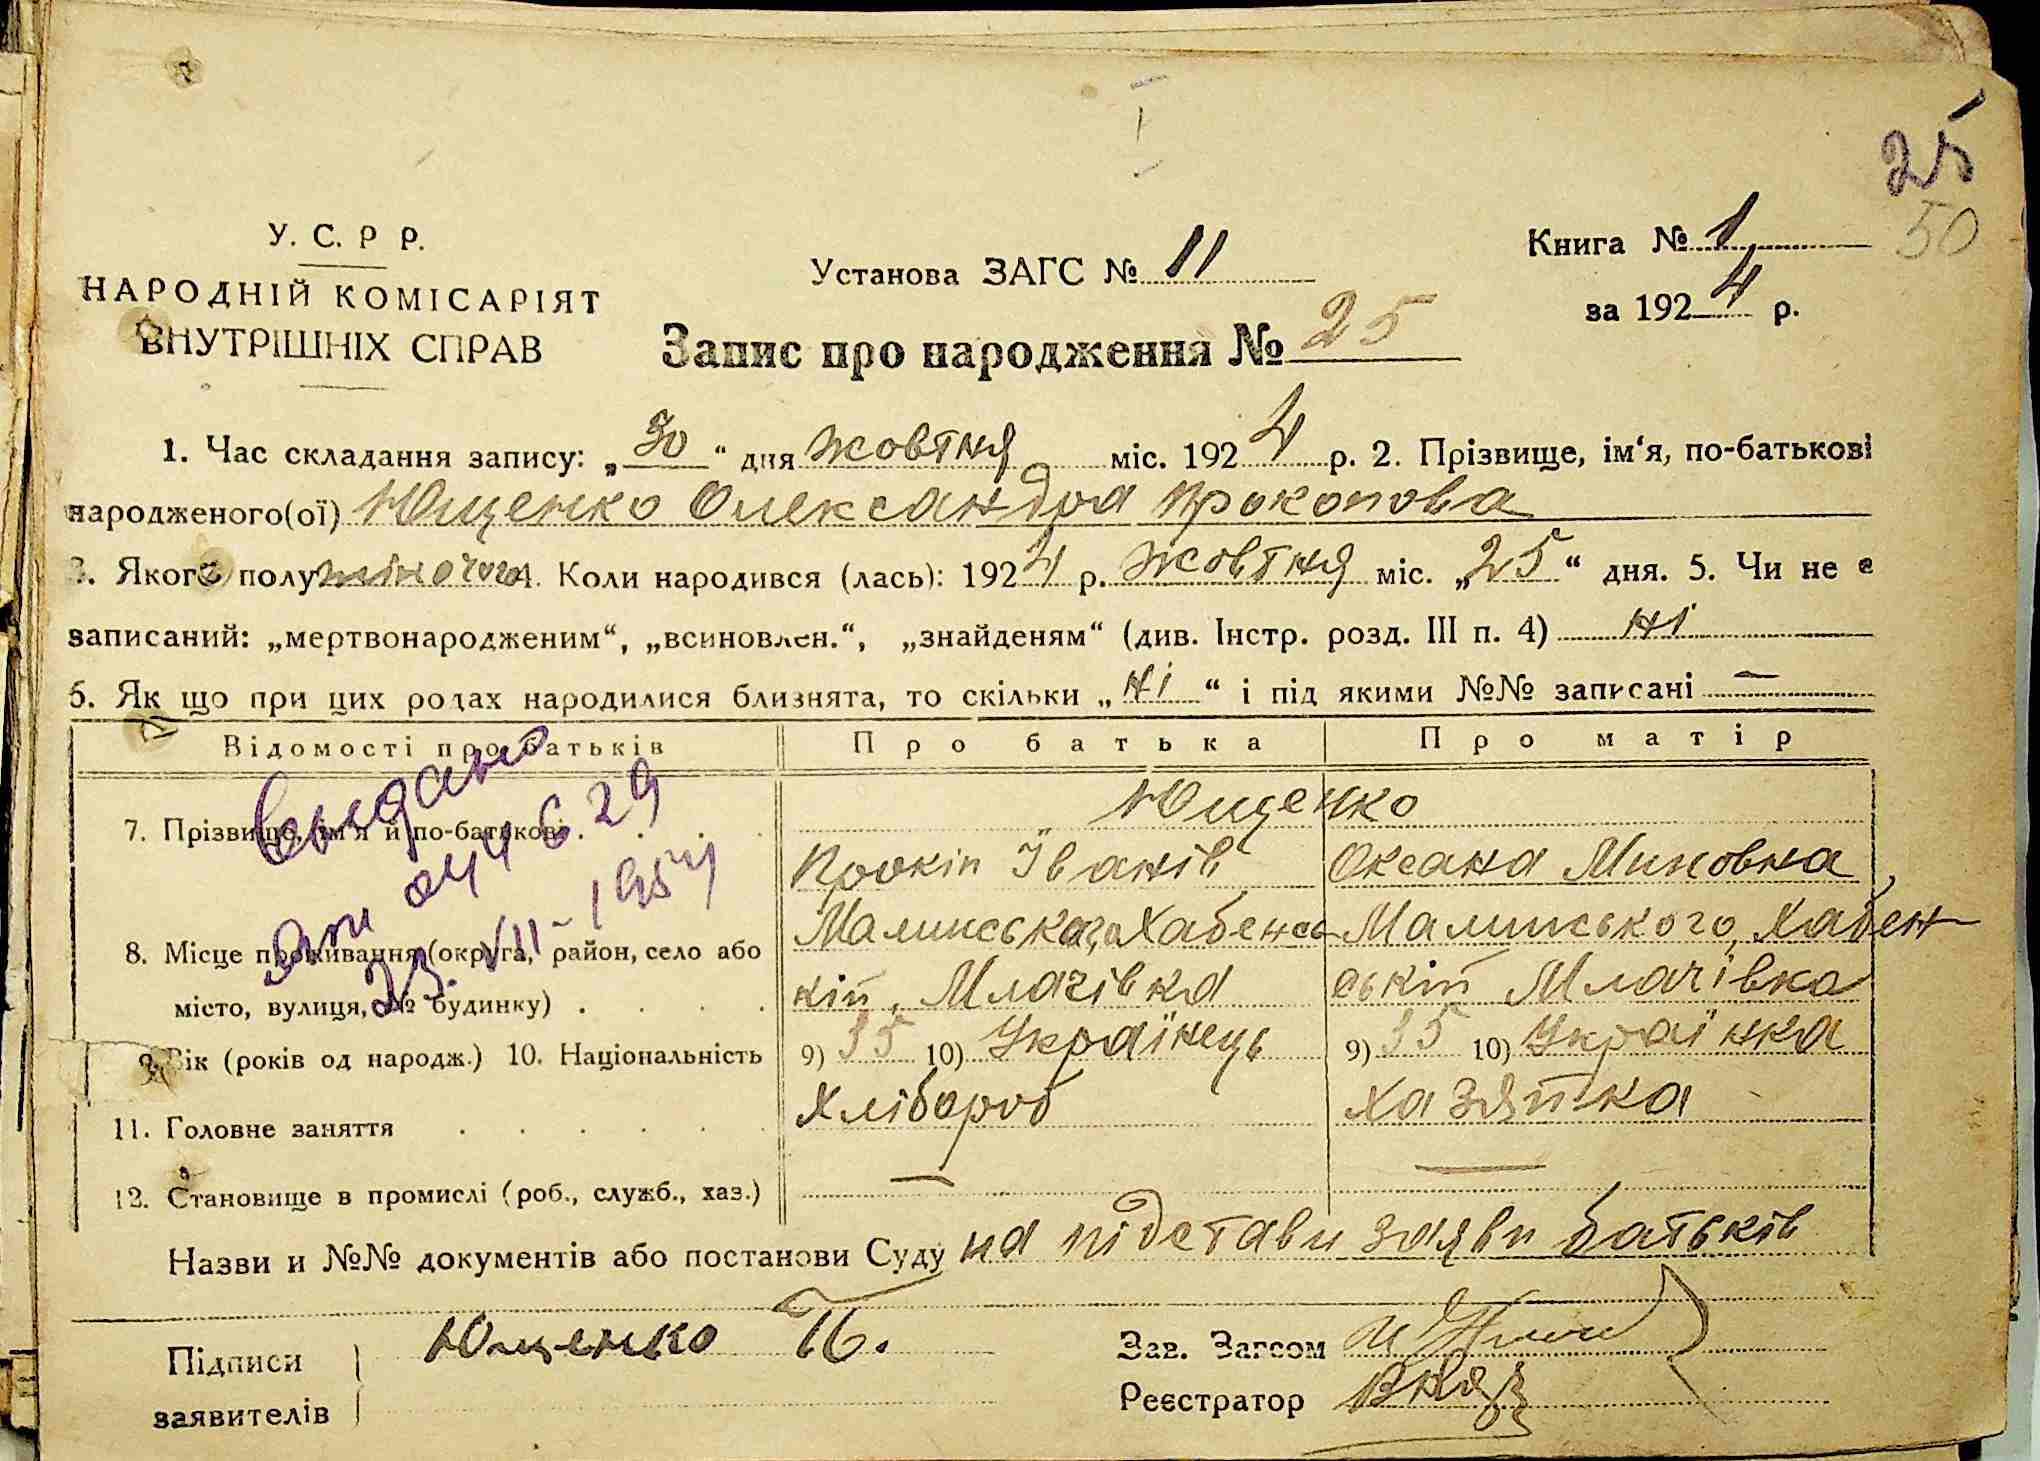 25
50
У. С. Р Р.
НАРОДНІЙ КОМІСАРІЯТ
ВНУТРІШНІХ СПРАВ
Установа ЗАГС № 11
Книга № 1
за 1924 р.
Запис про народження № 25
1. Час складання запису: „30“ дня жовтня міс. 1924 р. 2. Прізвище, ім‘я, по-батькові
народженого(ої) Ющенко Олександра Прокопова
3. Якого полу жіночого 4. Коли народився (лась): 1924 р. жовтня міс. „25“ дня. 5. Чи не є
записаний: „мертвонародженим“, „всиновлен.“, „знайденям“ (див. Інстр. розд. III п. 4) ні
6. Як що при цих родах народилися близнята, то скільки „ні“ і під якими №№ записані —
Відомості про батьків Про батька Про матір
Ющенко
7. Прізвище, ім‘я й по-батькові . . . . Прокіп Іванів Оксана Миновна
8. Місце проживання (округа, район, село або Малинського Хабенсь- Малинського, Хабен-
місто, вулиця, № будинку) . . . . кій, Млачівка ський Млачівка
9. Вік (років од народж.) 10. Національність 9) 35 10) Українець 9) 35 10) Українка
11. Головне заняття . . . . . . Хлібороб хазяйка
12. Становище в промислі (роб., служб., хаз.) — —
Видано
044629
23.VII-1954
Назви и №№ документів або постанови Суду на підстави заяви батьків
Підписи Ющенко П. Зав. Загсом
заявителів Реєстратор